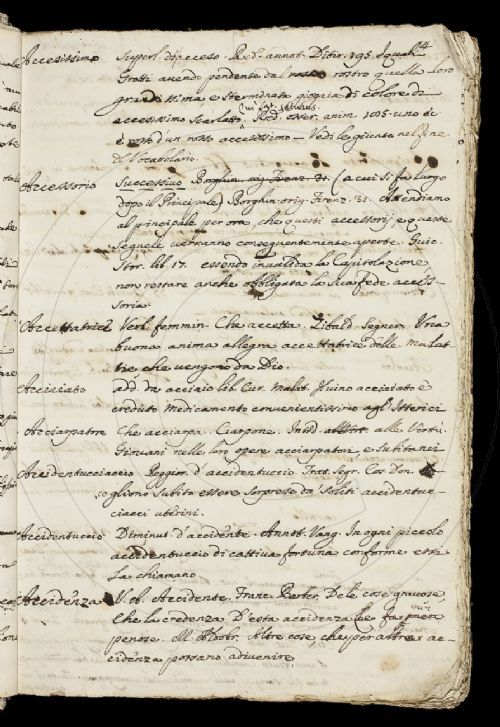 Accesissimo Superl. d'acceso. Red. annot. Ditir. 195. I quali
Grotti avendo pendente dal rostro quella loro
grandissima, e sterminata giogaia di colore di
accesissimo Scarlatto. Red. osser. anim. 105. uno de
è rosso d'un rosso accesissimo — Vedi le giunte nel fine
d. Vocabolario.
Accessorio Successivo Borghin. orig. Firenz. 31. (a cui si fa luogo
dopo il Principale) Borghin. orig. Firenz. 31. Attendiamo
al principale per ora, che questi accessorij, e queste
seguele verranno conseguentemente aperte. Guic.
Stor. lib. 17. essendo invalida la Capitolazione
non restare anche obbligata la sua fede acces-
soria.
Accettatrice Verb. femmin. Che accetta. Zibald. Segner. Una
buona anima allegra accettatrice delle malat-
tie, che vengono da Dio.
Acciaiato add. da acciaio lib. Cur. Malat. Il vino acciaiato è
creduto medicamento convenientissimo agl'Isterici
Acciarpatore Che acciarpa. Ciarpone. alle Virtù.
Giovani nelle loro opere acciarpatori, e subitanei
Accidentucciaccio Peggior. d'accidentuccio. Trat. Segr. Cos. Don.
sogliono subito essere sorprese da soliti accidentuc-
ciacci uterini.
Accidentuccio Diminut. d'accidente. Annot. Vang. In ogni piccolo
accidentuccio di cattiva fortuna conforme essi
la chiamano.
Accidenza V. A. Accidente. Franc. Barber. De le cose gravose
Che la credenza D'esta accidenza
penose. Altre cose, che per altra ac-
cidenza possano adivenire